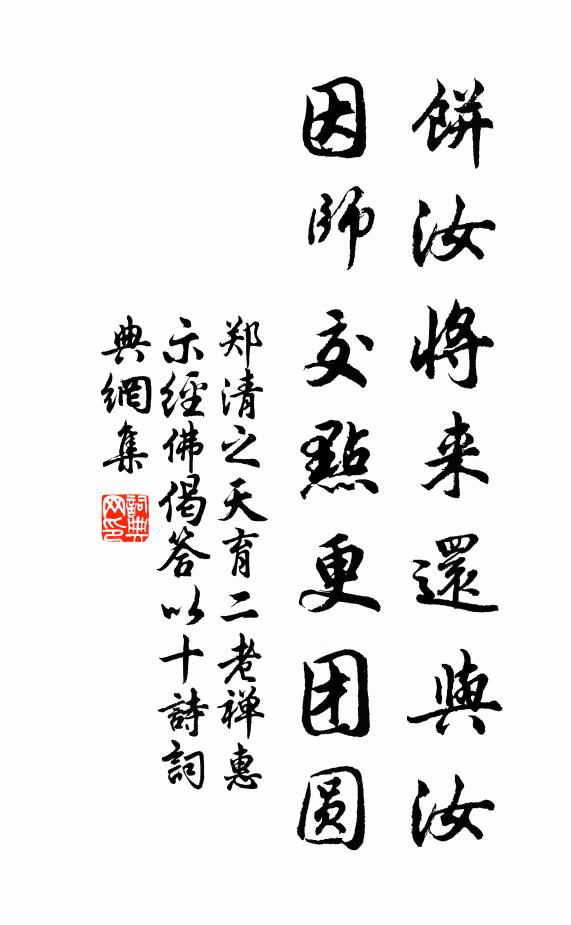 餅汝將来還與汝
因師交點更团圆
郑清之天育二老禅惠
示經佛偈答以十詩詞
典網集
詞典网印